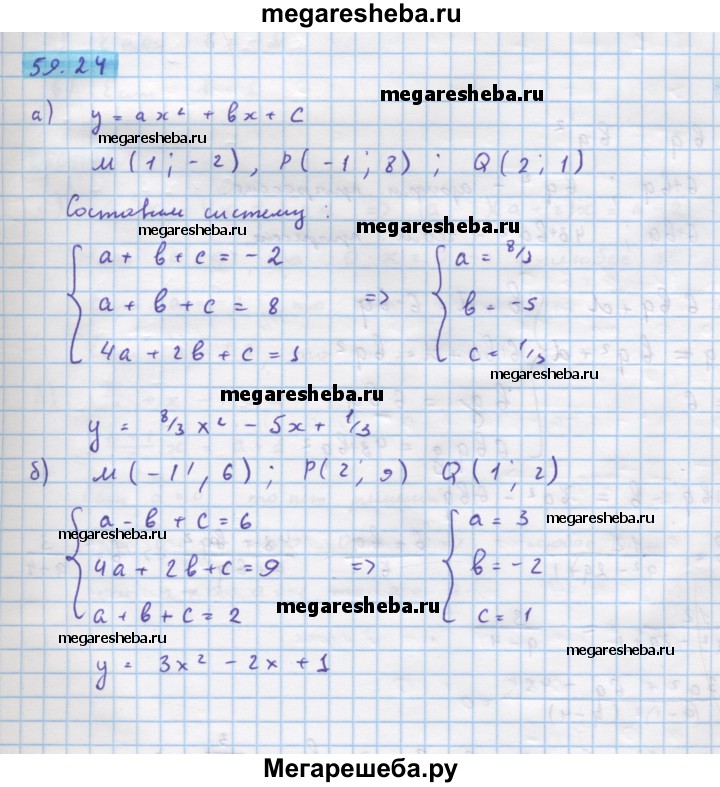 megaresheba.ru
59.24
megaresheba.ru
а) y = ax² + bx + c
megaresheba.ru
M (1 ; -2) , P (-1 ; 8) ; Q (2 ; 1)
Составим систему :
megaresheba.ru megaresheba.ru
a + b + c = -2 a = 8/3
a + b + c = 8 => b = -5
4a + 2b + c = 1 c = 1/3
megaresheba.ru
megaresheba.ru
y = 8/3 x² - 5x + 1/3
б) M (-1 ; 6) ; P (2 ; 9) Q (1 ; 2)
a - b + c = 6 a = 3 megaresheba.ru
megaresheba.ru
4a + 2b + c = 9 => b = -2
megaresheba.ru
a + b + c = 2 c = 1
megaresheba.ru
megaresheba.ru
y = 3x² - 2x + 1
Мегарешеба.ру